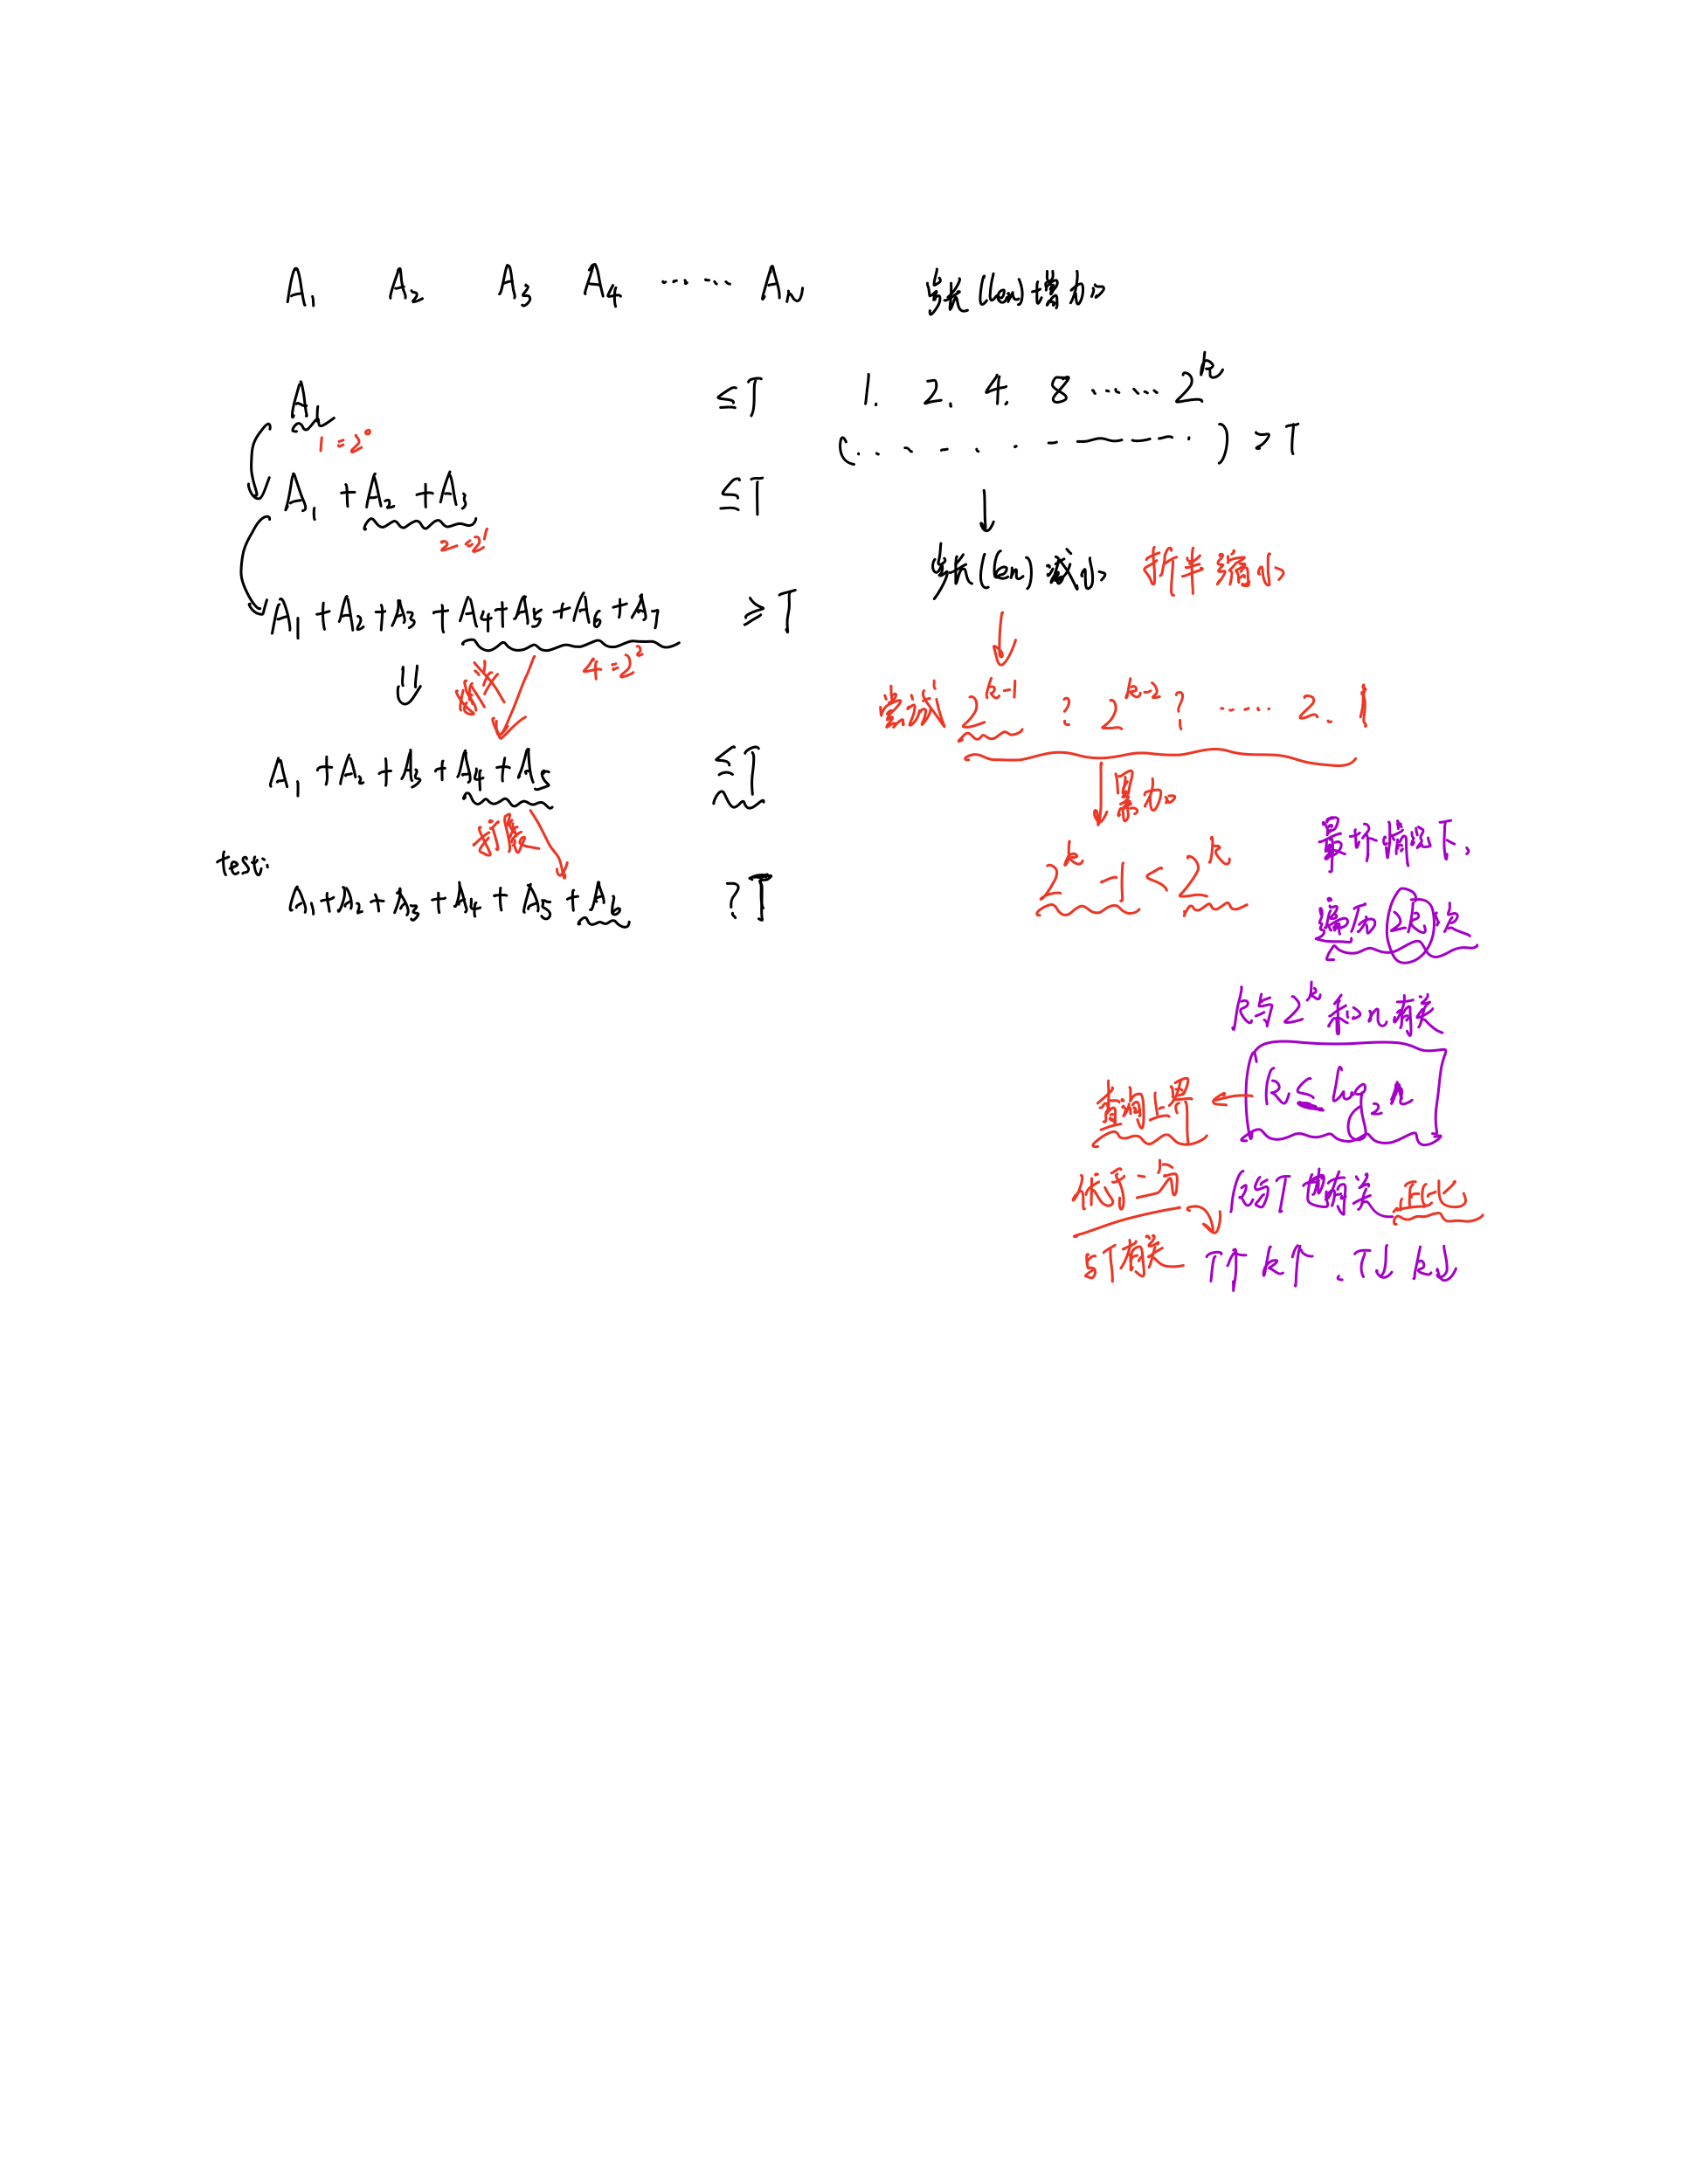 A₁ A₂ A₃ A₄ ······ A_N
A₁ ≤T
1=2⁰
A₁+A₂+A₃ ≤T
2=2¹
A₁+A₂+A₃+A₄+A₅+A₆+A₇ ≥T
4=2²
折半
A₁+A₂+A₃+A₄+A₅ ≤T
扩展
test:
A₁+A₂+A₃+A₄+A₅+A₆ ?T
步长(len)增加
1. 2. 4. 8 ······ 2ᵏ
(············) >T
步长(len)减小 折半缩小
尝试 2ᵏ⁻¹ ? 2ᵏ⁻² ? ····· 2. 1
累加
2ᵏ-1<2ᵏ
最坏情况下,
遍历2k次
k与2ᵏ和n有关
查询上界 ← k≤log₂n
低于二分
与T有关
k与T也有关 正比
T↑ k↑ . T↓ k↓